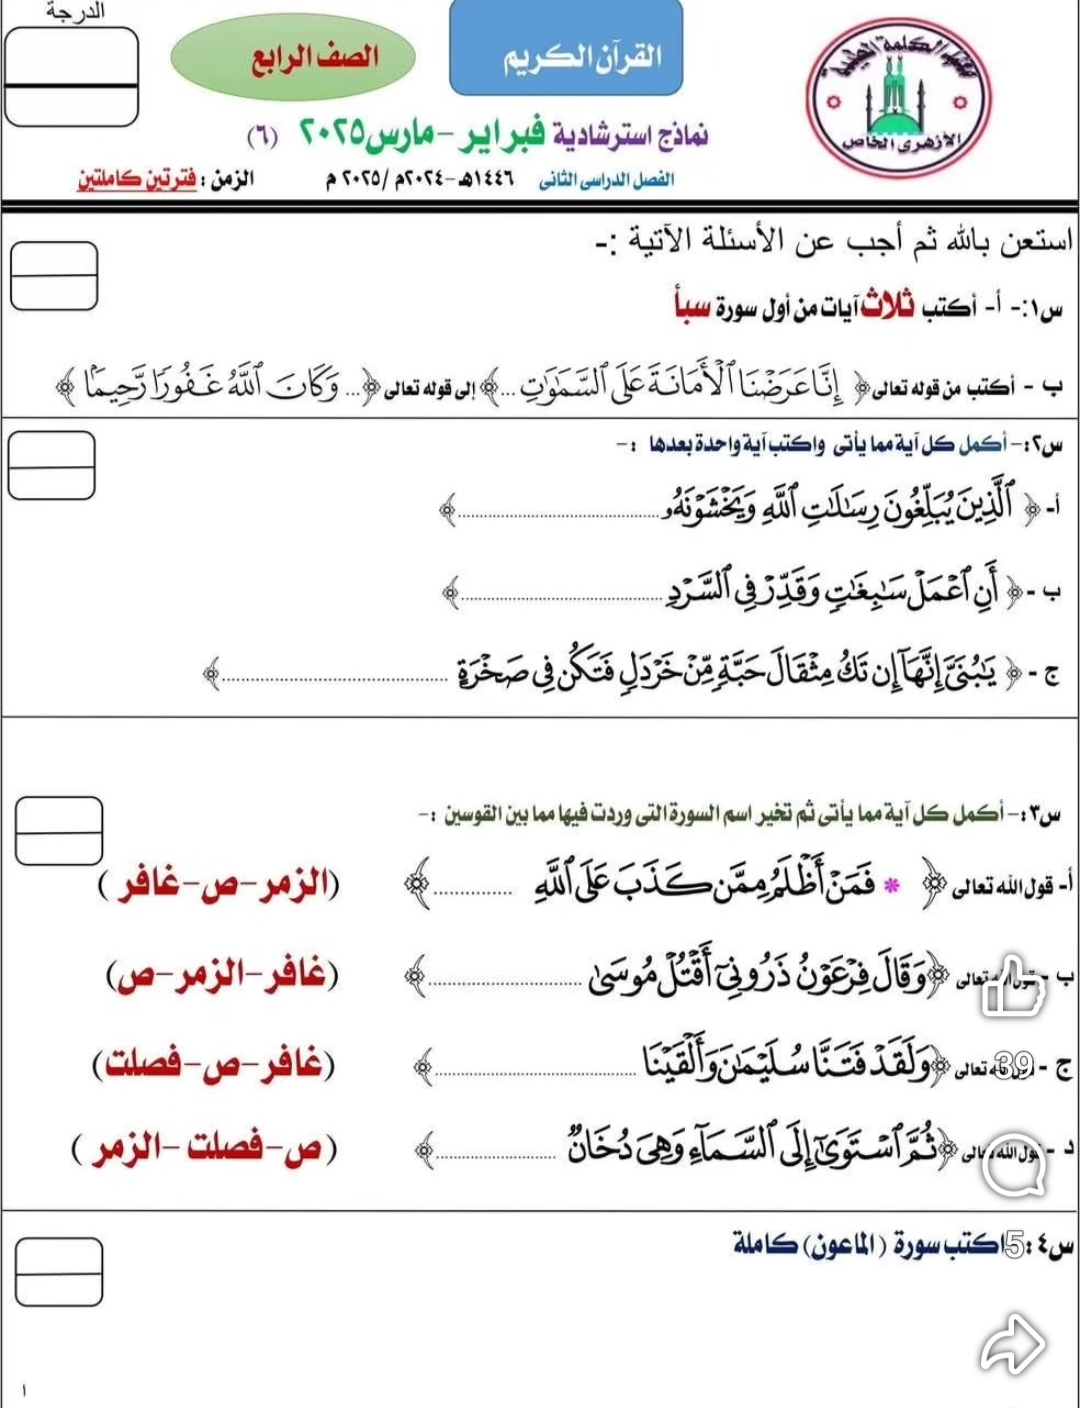 الدرجة
القرآن الكريم
الصف الرابع
الأزهرى الخاص
نماذج استرشادية فبراير - مارس ٢٠٢٥ (٦)
الفصل الدراسى الثانى ١٤٤٦هـ - ٢٠٢٤م / ٢٠٢٥ م الزمن : فترتين كاملتين
استعن بالله ثم أجب عن الأسئلة الآتية :-
س١:- أ- أكتب ثلاث آيات من أول سورة سبأ
ب - أكتب من قوله تعالى ﴿ إِنَّا عَرَضْنَا ٱلْأَمَانَةَ عَلَى ٱلسَّمَٰوَٰتِ ...﴾ إلى قوله تعالى ﴿... وَكَانَ ٱللَّهُ غَفُورًا رَّحِيمًا ﴾
س٢:- أكمل كل آية مما يأتى واكتب آية واحدة بعدها :-
أ- ﴿ ٱلَّذِينَ يُبَلِّغُونَ رِسَٰلَٰتِ ٱللَّهِ وَيَخْشَوْنَهُۥ ....................﴾
ب - ﴿ أَنِ ٱعْمَلْ سَٰبِغَٰتٍ وَقَدِّرْ فِى ٱلسَّرْدِ ....................﴾
ج - ﴿ يَٰبُنَىَّ إِنَّهَآ إِن تَكُ مِثْقَالَ حَبَّةٍ مِّنْ خَرْدَلٍ فَتَكُن فِى صَخْرَةٍ ....................﴾
س٣:- أكمل كل آية مما يأتى ثم تخير اسم السورة التى وردت فيها مما بين القوسين :-
أ- قول الله تعالى ﴿ * فَمَنْ أَظْلَمُ مِمَّن كَذَبَ عَلَى ٱللَّهِ ..............﴾ (الزمر-ص-غافر )
ب - قول الله تعالى ﴿وَقَالَ فِرْعَوْنُ ذَرُونِىٓ أَقْتُلْ مُوسَىٰ ....................﴾ (غافر-الزمر-ص)
ج - قول الله تعالى ﴿وَلَقَدْ فَتَنَّا سُلَيْمَٰنَ وَأَلْقَيْنَا ....................﴾ (غافر-ص-فصلت)
39
د - قول الله تعالى ﴿ثُمَّ ٱسْتَوَىٰٓ إِلَى ٱلسَّمَآءِ وَهِىَ دُخَانٌ ....................﴾ (ص-فصلت -الزمر )
س٤: اكتب سورة (الماعون) كاملة
5
١